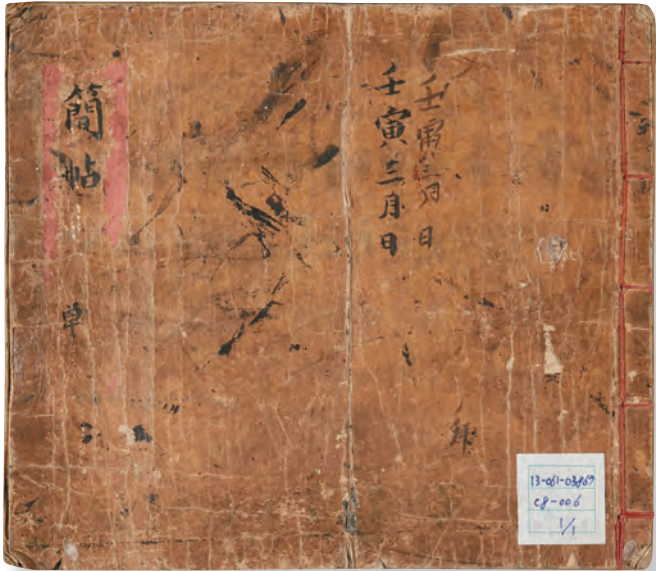 壬寅三月日
壬寅三月日
簡帖
草
13-061-03869
c8-006
1/1